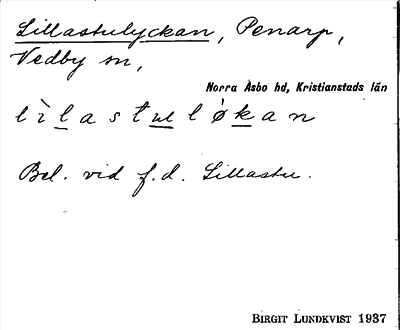 Lillastulyckan, Penarp,
Vedby sn,
Norra Åsbo hd, Kristianstads län
lìlastulø̀kan
Bel. vid f.d. Lillastu.
BIRGIT LUNDKVIST 1937